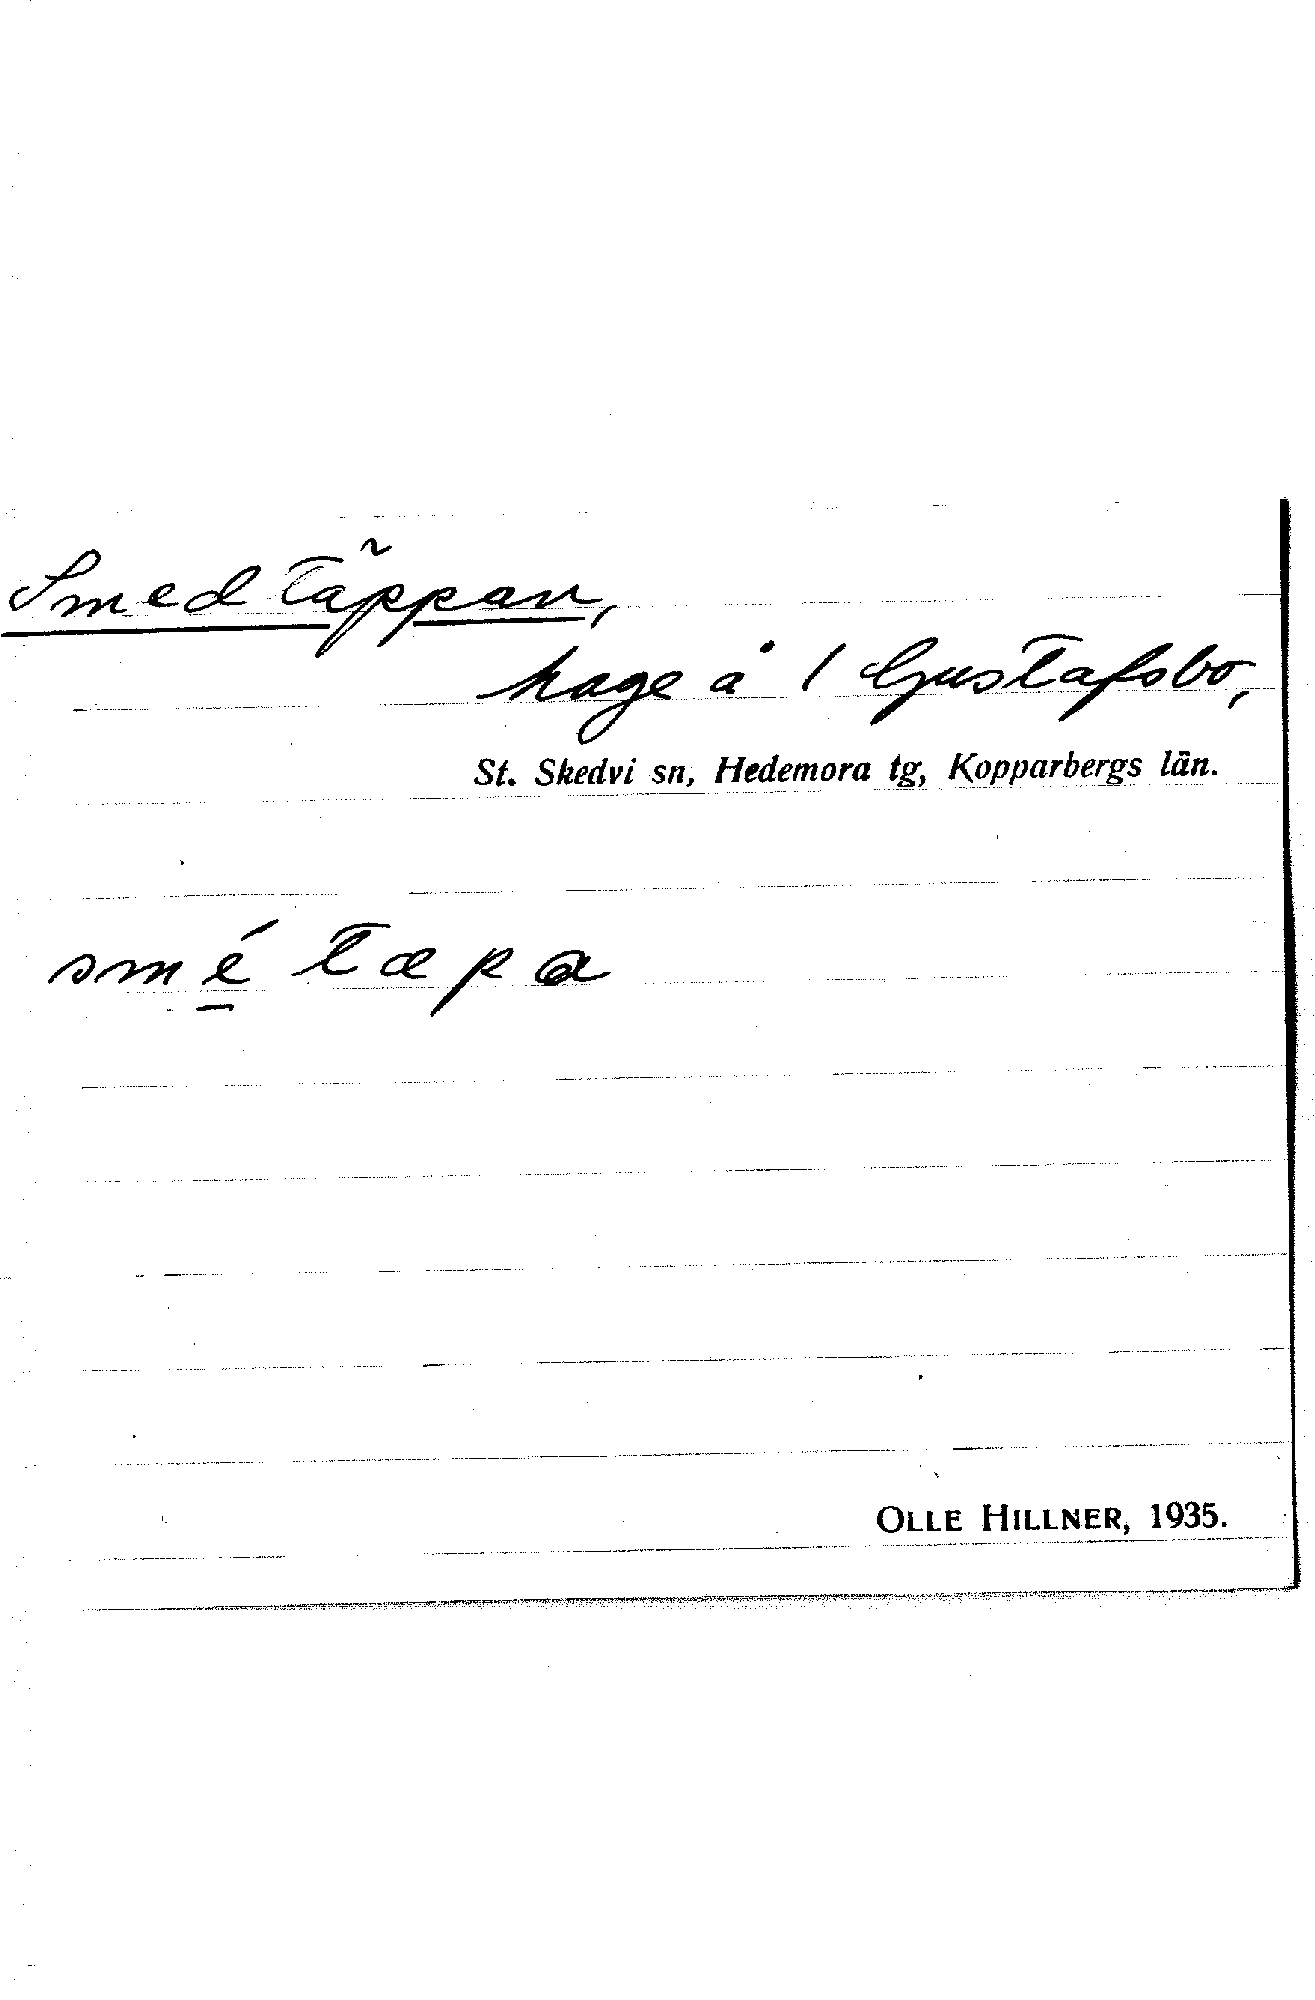 Smedtäppan,
hage å 1 Gustafsbo,
St. Skedvi sn, Hedemora tg, Kopparbergs län.
smé̱tæpa
OLLE HILLNER, 1935.